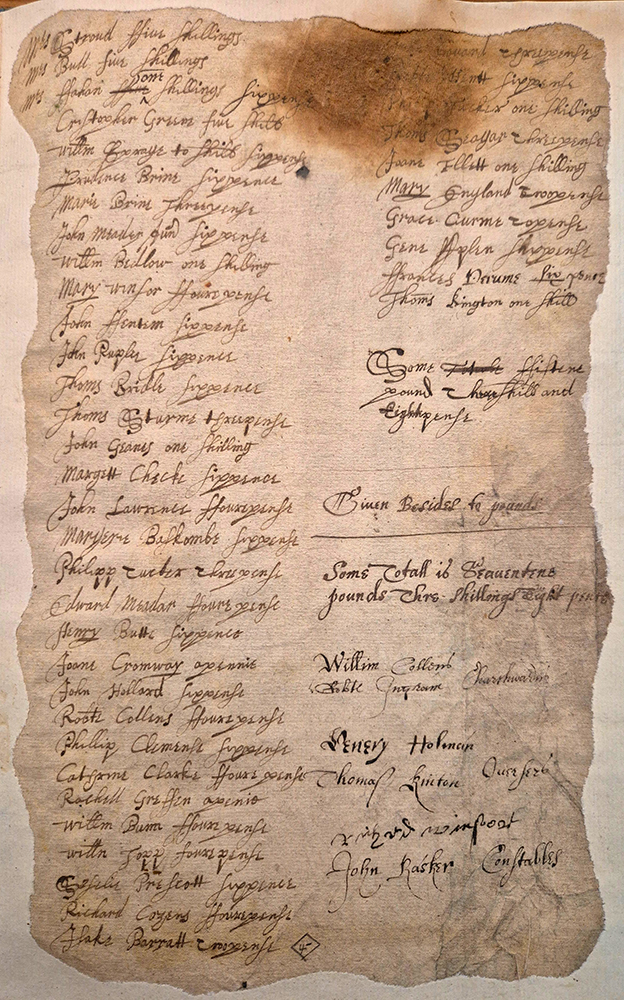 Mrs Stroud ffive shillings
Mrs Bull five shillings
Mrs shillings sixpense
some
Cristopher Greene five shills
willm to shills sixpense
Prudence Brine sixpence
Marie Brine threepense
John Meader sixpense
willm Bellow one skilling
Mary winsor ffourepense
John ffentem sixpense
John sixpence
Thoms Bridle sixpence
Thoms Sturme threepense
John Geanes one skilling
Margett Checke sixpence
John Lawrence ffourepense
Marjerie Baskombe sixpense
Philipp tucker threepense
Edward Meadar ffourepense
Henry Butte sixpence
Joane Cromway apennie
John Hollard sixpense
Robte Collens ffourepense
Phillip Clemense sixpense
Cathrne Clarke ffourepense
Rachell Greffen apenie
willm Bunn ffourepense
willm Topp fourepense
Prescott sixpence
Richard Cozens ffourepense
Barratt twopense
threepense
sixpense
one skilling
Thoms Seagar threepense
Joane Ellett one skilling
Mary England twopense
Grace Curme topense
Gene sixpense
ffrances Perume six pence
Thoms Kington one skill
Some Totale ffiftene
pound three skill and
Eightpense
Given Besides to pounds
Some Totall is Seaventene
pounds Thre shillings Eight pence
Willim Collens
Robte Ingram Churchwardns
Henery Holman
Thomas Kinton Oversers
richerd winsoor
John Hasker Constables